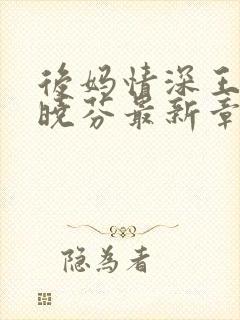 後妈情深王
晓芬最新章
隐为者